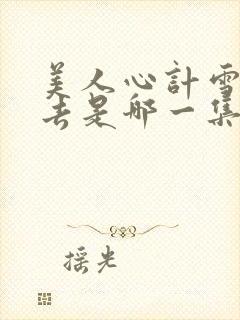 美人心計雪
去是哪一集
摇光